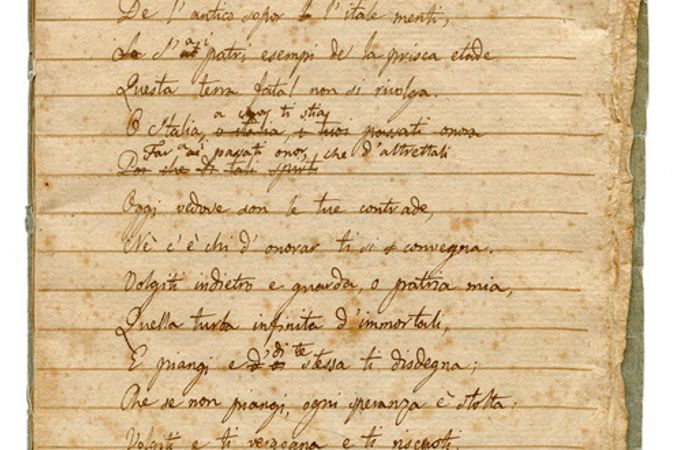 De l'antico sopor l'itale menti,
S'ai patri esempi de la prisca etade
Questa terra fatal non si rivolga.
a cor ti stia
O Italia, o Italia, i tuoi passati onora
Far ai passati onor, che d'altrettali
Poi che di tali spirti
Oggi vedove son le tue contrade,
Nè c'è chi d'onorar ti si convegna.
Volgiti indietro e guarda, o patria mia,
Quella turba infinita d'immortali,
E piangi e di te stessa ti disdegna;
Che se non piangi, ogni speranza è stolta:
Volgiti e ti vergogna e ti riscuoti,